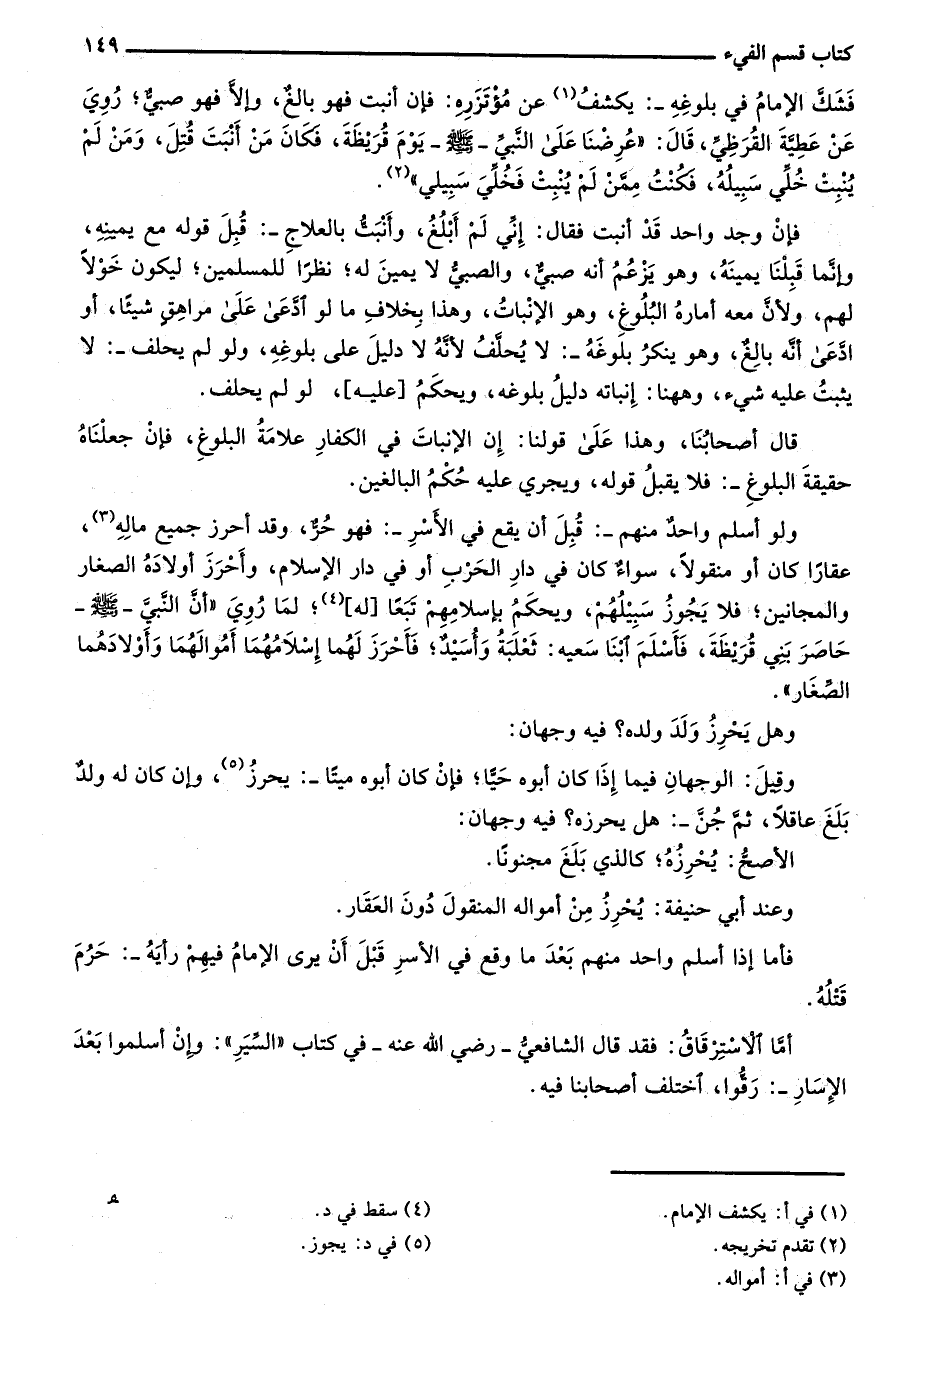 كتاب قسم الفيء ١٤٩
فَشَكَّ الإمامُ في بلوغِهِ ـ: يكشفُ(١) عن مُؤْتَزَرِهِ: فإن أنبت فهو بالغٌ، وإلاَّ فهو صبيٌّ؛ رُوِيَ
عَنْ عَطِيَّةَ القُرَظِيِّ، قَالَ: «عُرِضْنَا عَلَىٰ النَّبِيِّ ـ ﷺ ـ يَوْمَ قُرَيْظَةَ، فَكَانَ مَنْ أَنْبَتَ قُتِلَ، وَمَنْ لَمْ
يُنْبِتْ خُلِّي سَبِيلُهُ، فَكُنْتُ مِمَّنْ لَمْ يُنْبِتْ فَخُلِّيَ سَبِيلي»(٢).
فإنْ وجد واحد قَدْ أنبت فقال: إِنِّي لَمْ أَبْلُغُ، وأَنْبَتُّ بالعلاجِ ـ: قُبِلَ قوله مع يمينِهِ،
وإنَّما قَبِلْنَا يمينَهُ، وهو يَزْعُمُ أنه صبيٌّ، والصبيُّ لا يمينَ له؛ نظرًا للمسلمين؛ ليكون خَوْلاً
لهم، ولأنَّ معه أمارةُ البُلُوغِ، وهو الإنباتُ، وهذا بِخلافِ ما لو ٱدَّعَىٰ عَلَىٰ مراهِقٍ شيئًا، أو
ادَّعَىٰ أنَّه بالِغٌ، وهو ينكرُ بلوغَهُ ـ: لا يُحلَّفُ لأنَّهُ لا دليلَ على بلوغِهِ، ولو لم يحلف ـ: لا
يثبتُ عليه شيء، وههنا: إنباته دليلُ بلوغه، ويحكَمُ [عليه]، لو لم يحلف.
قال أصحابُنَا، وهذا عَلَىٰ قولنا: إن الإنباتَ في الكفار علامَةُ البلوغِ، فإنْ جعلْنَاهُ
حقيقةَ البلوغِ ـ: فلا يقبلُ قوله، ويجري عليه حُكْمُ البالغين.
ولو أسلم واحدٌ منهم ـ: قُبِلَ أن يقع في الأَسْرِ ـ: فهو حُرٌّ، وقد أحرز جميع مالِهِ(٣)،
عقارًا كان أو منقولاً، سواءٌ كان في دارِ الحَرْبِ أو في دار الإسلام، وأَحْرَزَ أولادَهُ الصغار
والمجانين؛ فلا يَجُوزُ سَبِيْلُهُمْ، ويحكَمُ بإسلامِهِمْ تَبَعًا [له](٤)؛ لمَا رُوِيَ «أنَّ النَّبيَّ ـ ﷺ ـ
حَاصَرَ بَنِي قُرَيْظَةَ، فَأَسْلَمَ ٱبْنَا سَعيه: ثَعْلَبَةُ وَأُسَيْدٌ؛ فَأَحْرَزَ لَهُما إِسْلاَمُهُمَا أَمْوالَهُمَا وَأَوْلادَهُما
الصِّغَار».
وهل يَحْرِزُ وَلَدَ ولده؟ فيه وجهان:
وقِيلَ: الوجهانِ فيما إذَا كان أبوه حَيًّا؛ فإنْ كان أبوه ميتًا ـ: يحرزُ(٥)، وإن كان له ولدٌ
بَلَغَ عاقلاً، ثمَّ جُنَّ ـ: هل يحرزه؟ فيه وجهان:
الأصحُّ: يُحْرِزُهُ؛ كالذي بَلَغَ مجنونًا.
وعند أبي حنيفة: يُحْرِزُ مِنْ أمواله المنقولَ دُونَ العَقَار.
فأما إذا أسلم واحد منهم بَعْدَ ما وقع في الأسرِ قَبْلَ أَنْ يرى الإمامُ فيهِمْ رأيَهُ ـ: حَرُمَ
قَتْلُهُ.
أمَّا ٱلْاسْتِرْقَاقُ: فقد قال الشافعيُّ ـ رضي الله عنه ـ في كتاب «السِّيَرِ»: وإنْ أسلموا بَعْدَ
الإِسَارِ ـ: رَقُّوا، ٱختلف أصحابنا فيه.
(١) في أ: يكشف الإمام.
(٢) تقدم تخريجه.
(٣) في أ: أمواله.
(٤) سقط في د.
(٥) في د: يجوز.